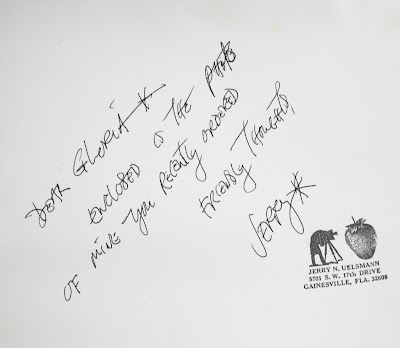 DEAR GLORIA
ENCLOSED IS THE PHOTO
OF MINE YOU RECENTLY ORDERED
FRIENDLY THOUGHTS,
JERRY
JERRY N. UELSMANN
5701 S. W. 17th DRIVE
GAINESVILLE, FLA. 32608